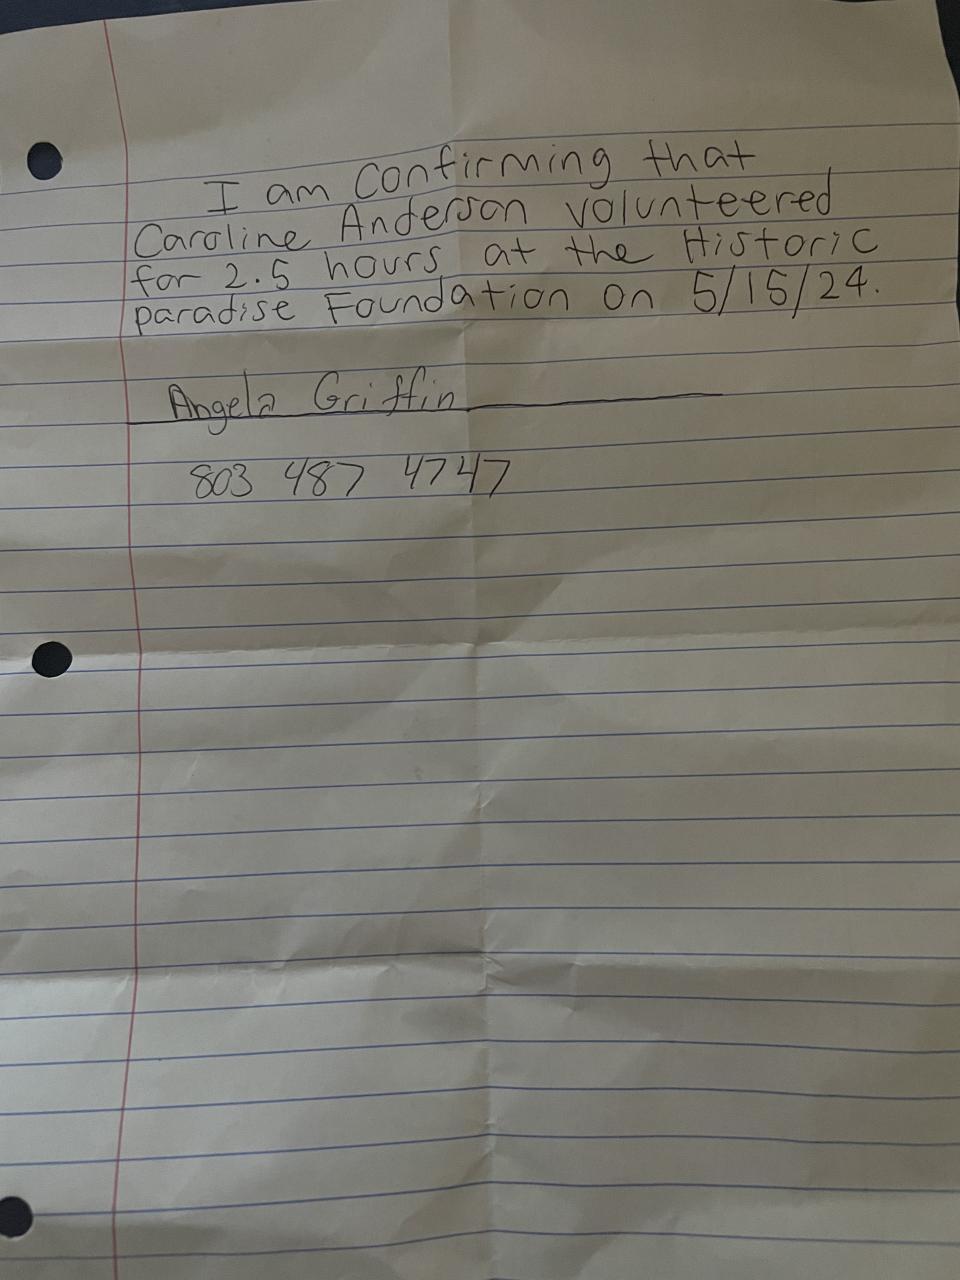 I am confirming that
Caroline Anderson volunteered
for 2.5 hours at the Historic
paradise Foundation on 5/15/24.
Angela Griffin
803 487 4747